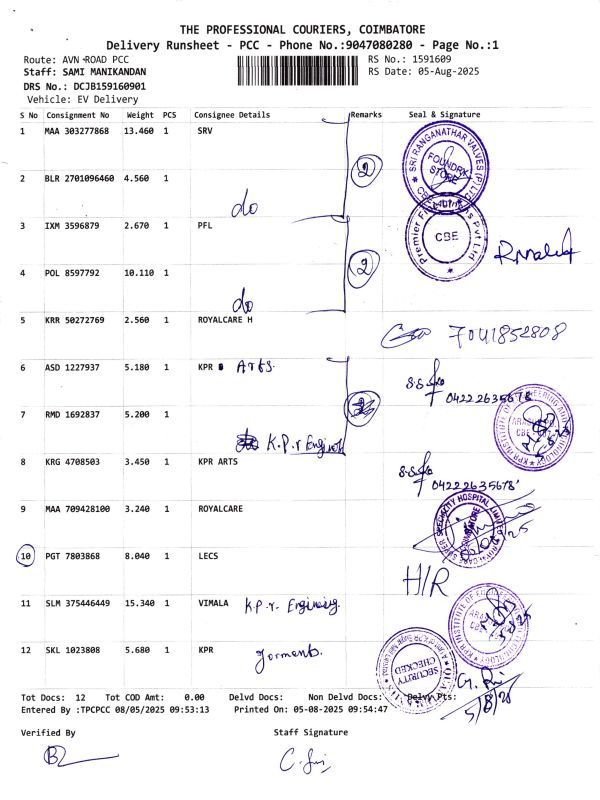 THE PROFESSIONAL COURIERS, COIMBATORE
Delivery Runsheet - PCC - Phone No.:9047080280 - Page No.:1
Route: AVN -ROAD PCC
RS No.: 1591609
Staff: SAMI MANIKANDAN
RS Date: 05-Aug-2025
DRS No.: DCJB159160901
Vehicle: EV Delivery
S No Consignment No Weight PCS Consignee Details Remarks Seal & Signature
1 MAA 303277868 13.460 1 SRV
2
SRI RANGANATHAR VALVES (P) LTD
FOUNDRY
STORE
2 BLR 2701096460 4.560 1 do
3 IXM 3596879 2.670 1 PFL
2
Pvt Ltd
CBE
4 POL 8597792 10.110 1 do
5 KRR 50272769 2.560 1 ROYALCARE H
7041852808
6 ASD 1227937 5.180 1 KPR Arts.
04222635678
7 RMD 1692837 5.200 1 K.P.r
8 KRG 4708503 3.450 1 KPR ARTS
04222635678
9 MAA 709428100 3.240 1 ROYALCARE
10 PGT 7803868 8.040 1 LECS
H/R
11 SLM 375446449 15.340 1 VIMALA K.P.r.
12 SKL 1023808 5.680 1 KPR
SECURITY
CHECKED
5/8/25
Tot Docs: 12 Tot COD Amt: 0.00 Delvd Docs: Non Delvd Docs: Delvy Pts:
Entered By :TPCPCC 08/05/2025 09:53:13 Printed On: 05-08-2025 09:54:47
Verified By Staff Signature